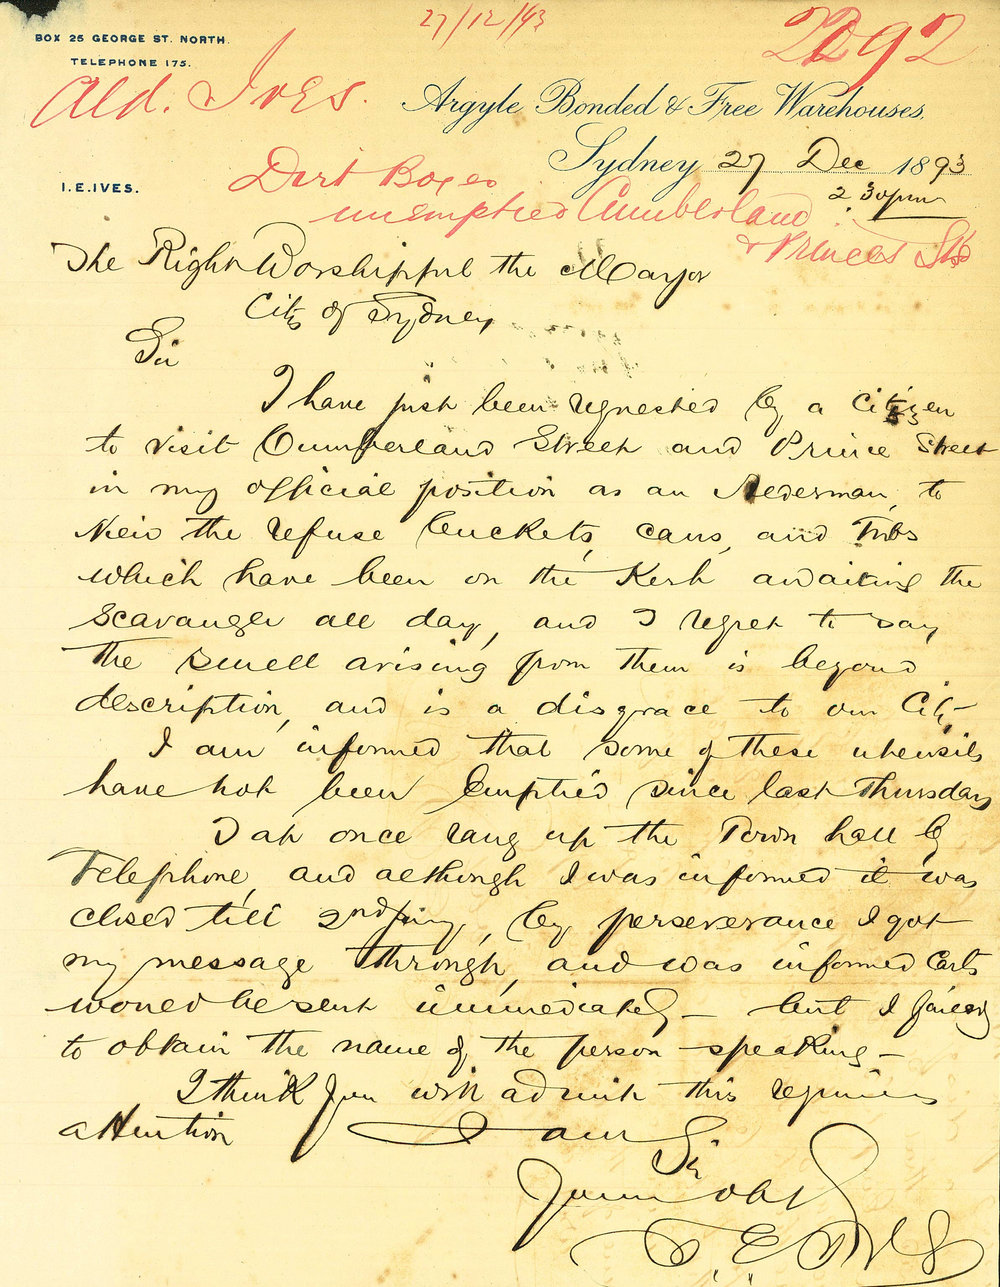 27/12/93
2292
BOX 25 GEORGE ST. NORTH.
TELEPHONE 175.
Ald. Ives.
Argyle Bonded & Free Warehouses.
Sydney 27 Dec 1893
2.30pm
I.E.IVES.
Dirt Boxes
unemptied Cumberland
& Princes Sts
The Right Worshipful the Mayor
City of Sydney
Sir
I have just been requested by a Citizen
to visit Cumberland Street and Prince Street
in my official position as an Alderman, to
View the refuse buckets, cans, and Tubs
which have been on the Kerb awaiting the
Scavanger all day, and I regret to say
the smell arising from them is beyond
description, and is a disgrace to our City.
I am informed that some of these utensils
have not been Emptied since last Thursday
I at once rang up the Town hall by
Telephone, and although I was informed it was
closed till 2nd Jany, by perseverance I got
my message through, and was informed Carts
would be sent immediately – but I failed
to obtain the name of the person speaking –
I think you will admit this requires
attention I am
Sir
Yours obdly
I. E. Ives